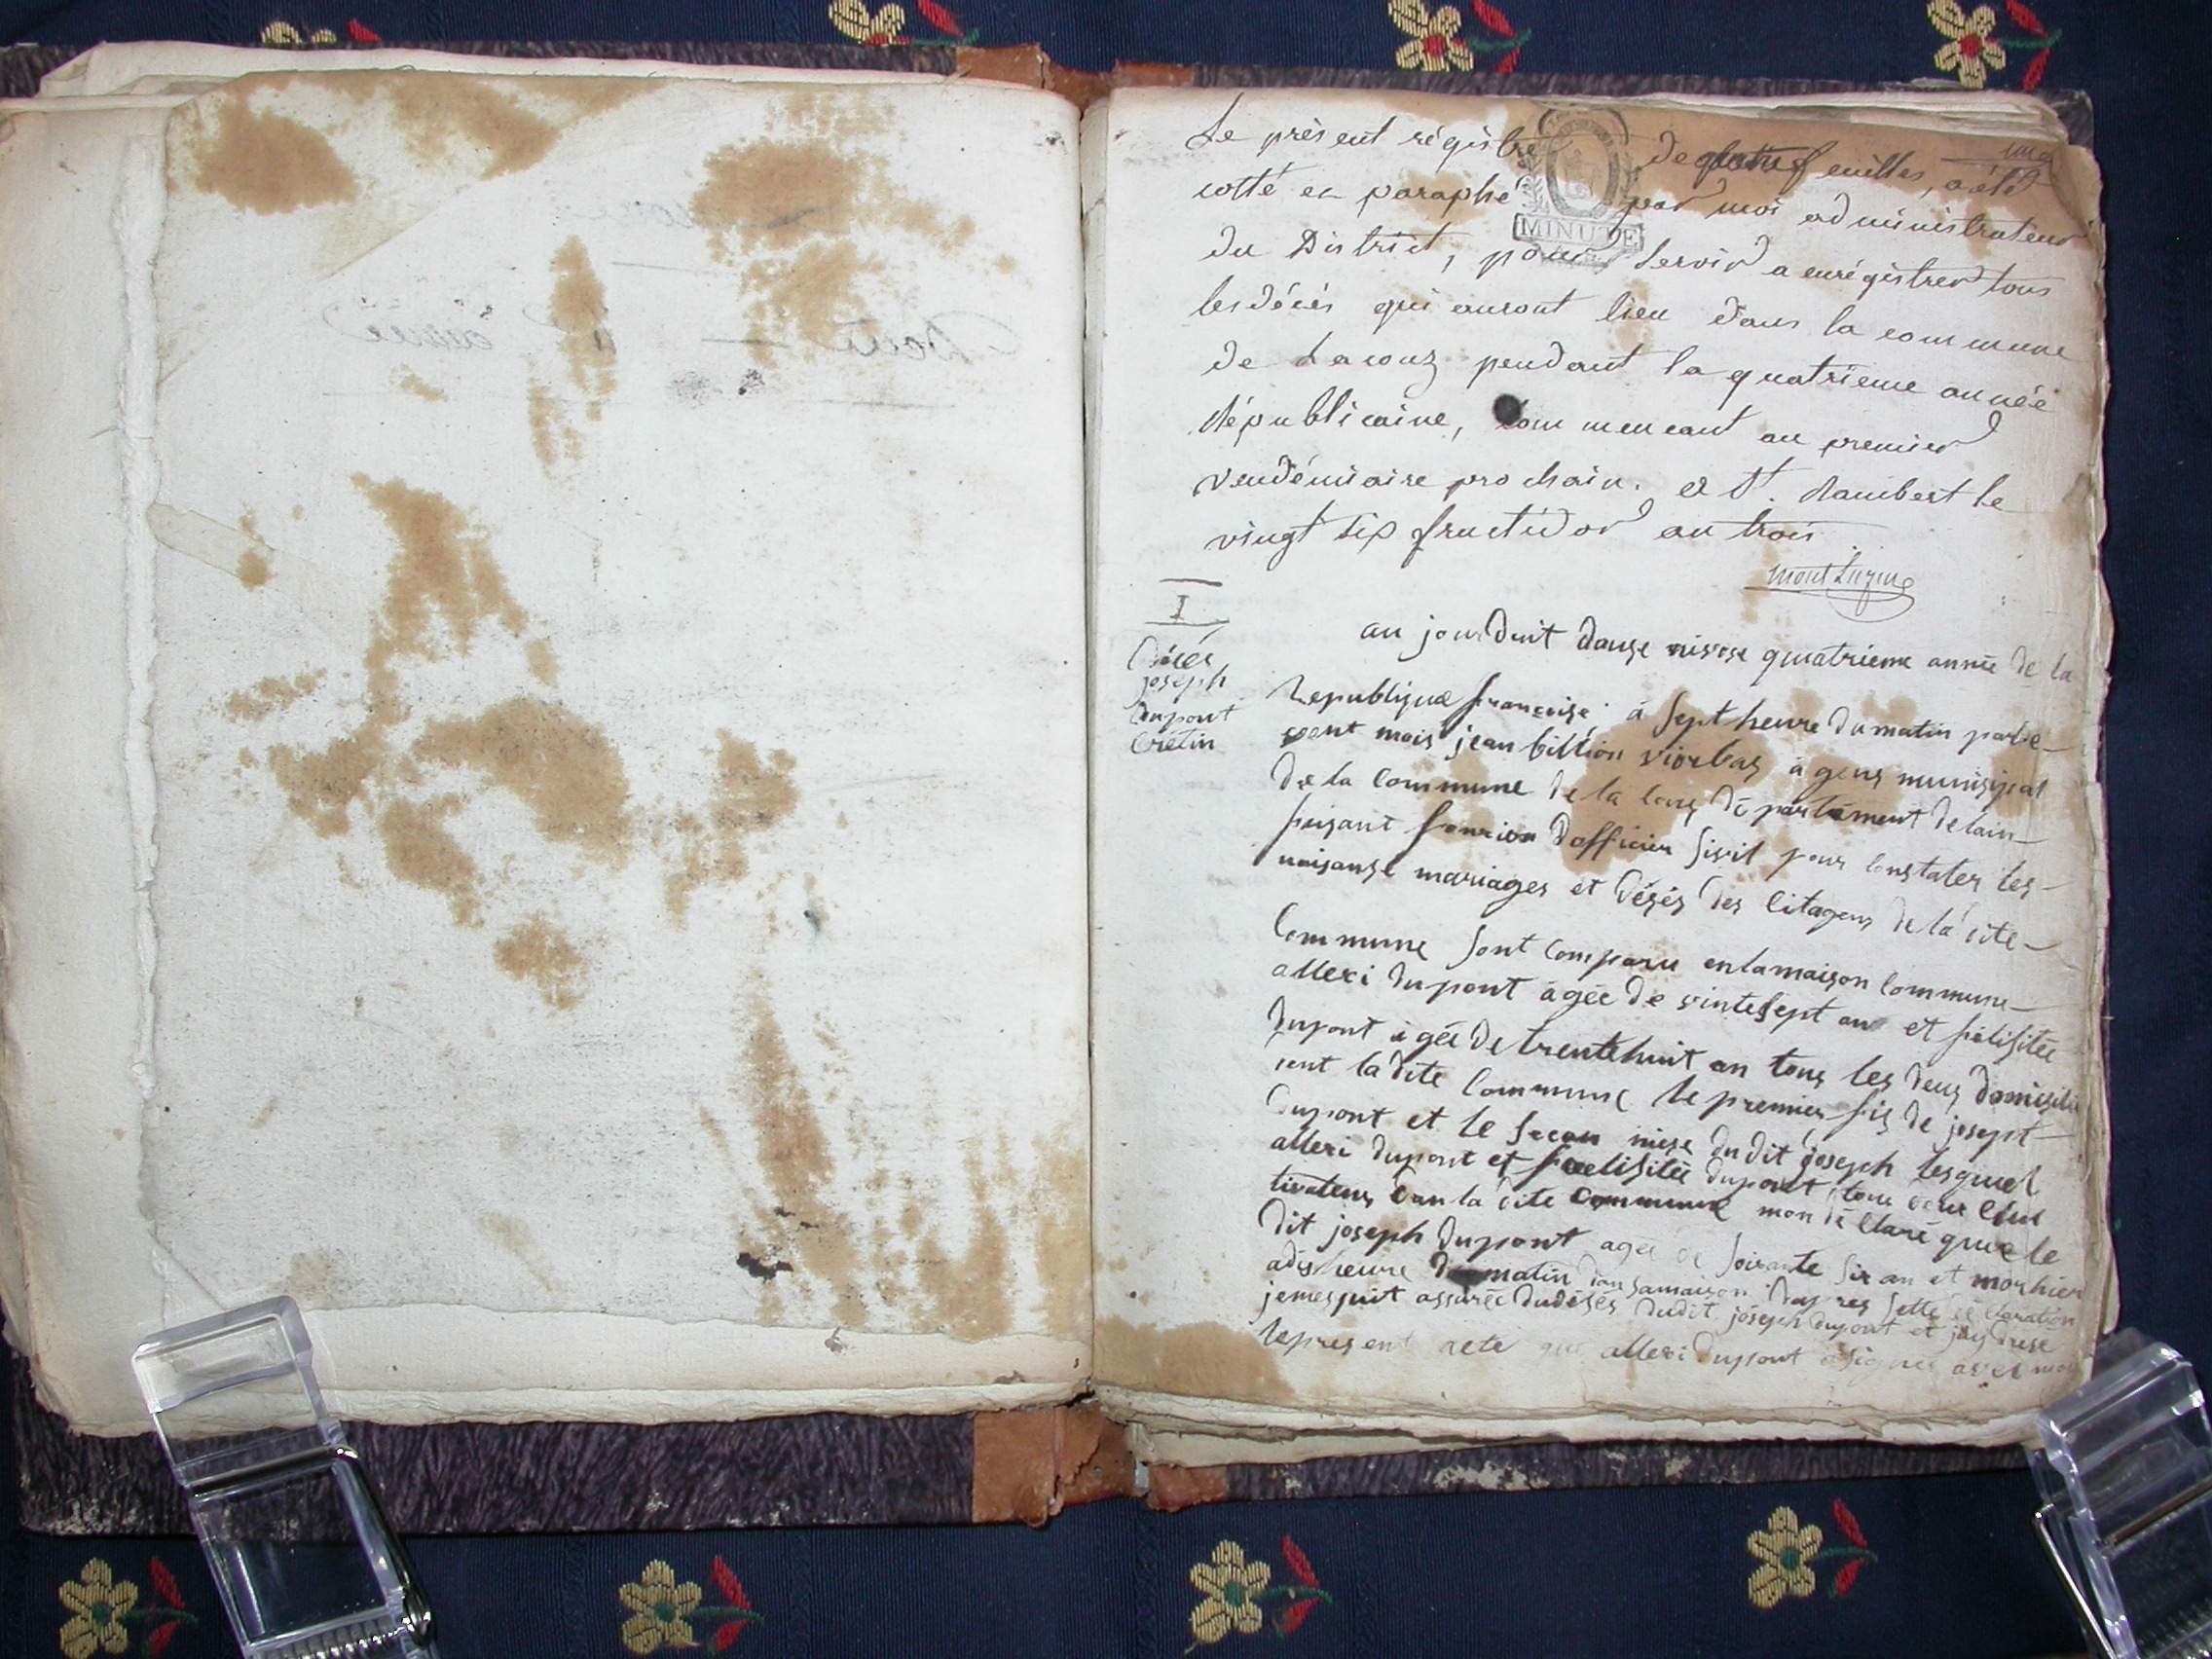 une
Le présent régistre de quatre feuilles, a été
cotté et paraphé par moi administrateur
MINUTE
du District, pour servir a enrégistrer tous
les décés qui auront lieu dans la commune
de Lacouz pendant la quatrieme année
républicaine, commencant au premier
vendémiaire prochain. a St. Rambert le
vingt six fructidor an trois
I
Décés
joseph
dupont
Crétin
au jourduit douze nivose quatrieme année de la
Republique françoise à sept heure du matin parde
vant mois jean billion viorbas agens munisipal
de la commune de la Couz département delain
faisant foncion dofficier sivil pour constater les
naisanse mariages et désés des citagens de la dite
commune sont comparu enlamaison commune
allexi dupont âgée de vintesept an et félisitée
dupont âgée de trentehuit an tous les deus domisili
ladite commune le premier fis de josept
dupont et le secon niese dudit joseph lesquel
allexi dupont et félisitée dupont tous deux cul
tivateur dan la dite commune mon déclaré que le
dit joseph dupont agée de soixante six an et mor hier
adis heure du matin dan samaison dapres sette déclaration
jemesuit assurée dudésés dudit joseph dupont et jay drese
lepresent acte que allexi dupont a signée avec moi